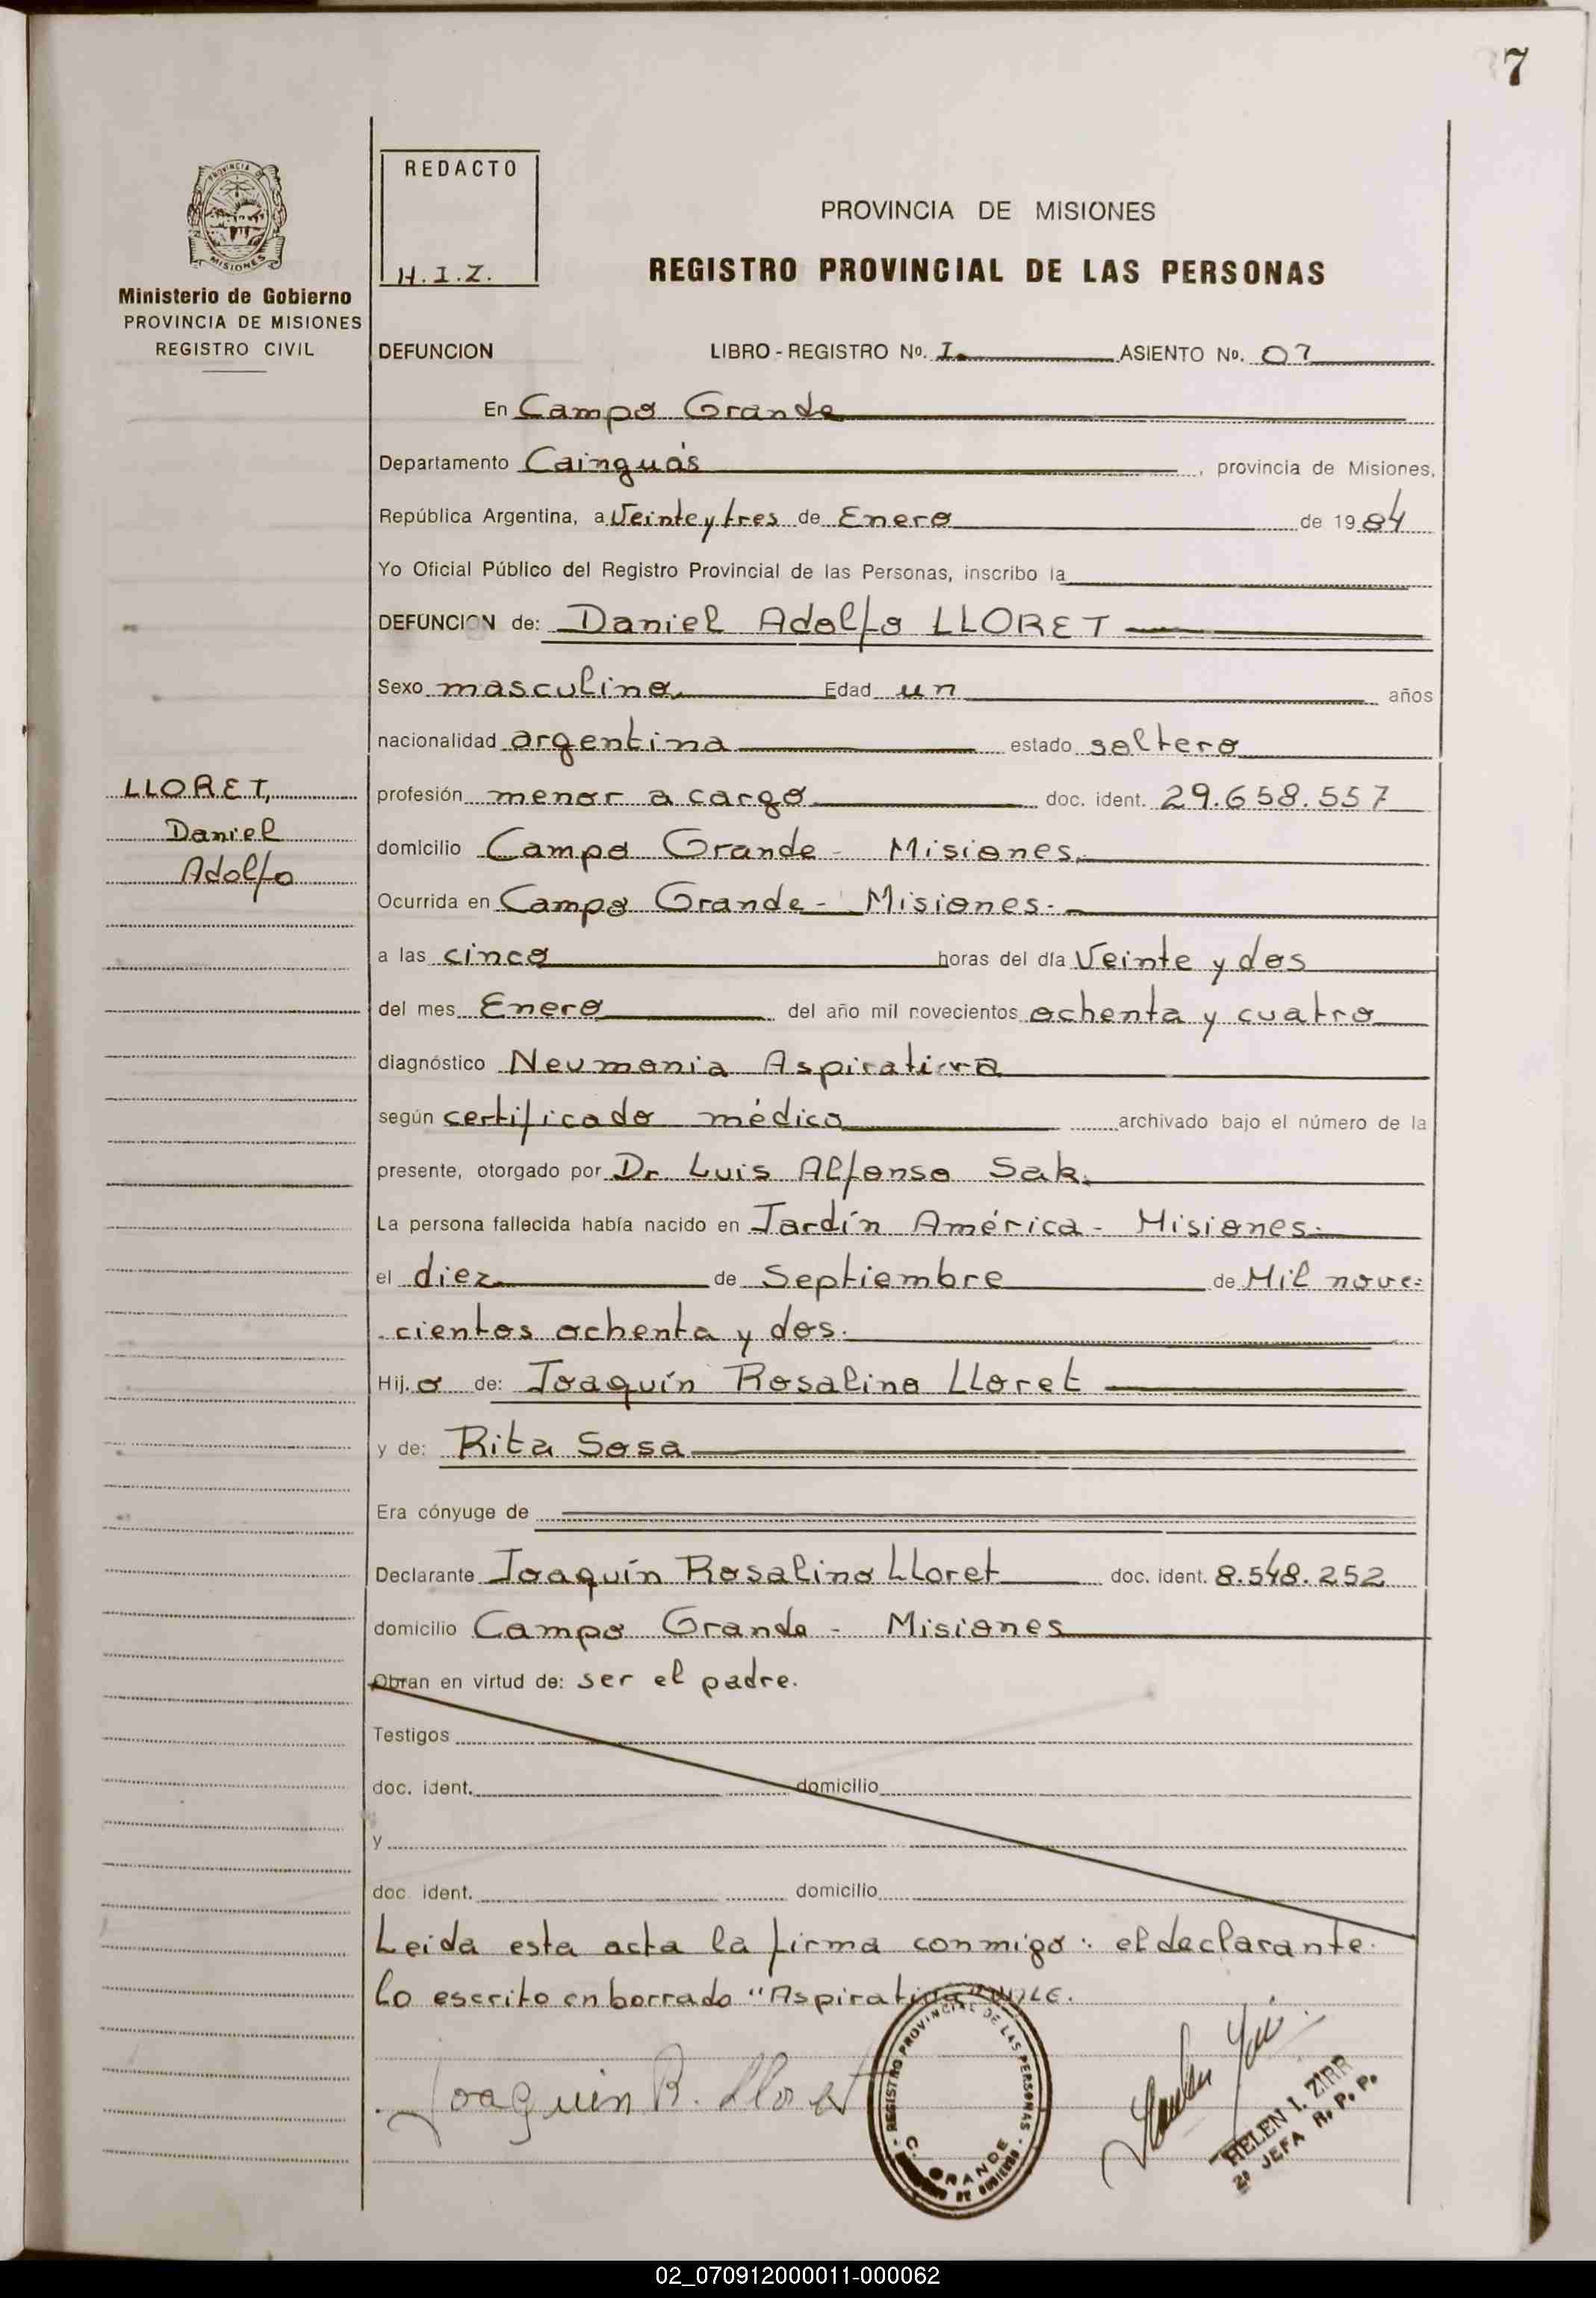 7
REDACTO
H.I.Z.
PROVINCIA DE MISIONES
REGISTRO PROVINCIAL DE LAS PERSONAS
PROVINCIA DE
MISIONES
Ministerio de Gobierno
PROVINCIA DE MISIONES
REGISTRO CIVIL
DEFUNCION LIBRO - REGISTRO No. I. ASIENTO No. 07
En Campo Grande
Departamento Cainguás, provincia de Misiones,
República Argentina, a Veinte y tres de Enero de 1984
Yo Oficial Público del Registro Provincial de las Personas, inscribo la
DEFUNCION de: Daniel Adolfo LLORET
Sexo masculino Edad un años
nacionalidad argentina estado soltero
LLORET,
Daniel
Adolfo
profesión menor a cargo doc. ident. 29.658.557
domicilio Campo Grande - Misiones.
Ocurrida en Campo Grande - Misiones.
a las cinco horas del día Veinte y dos
del mes Enero del año mil novecientos ochenta y cuatro
diagnóstico Neumonia Aspirativa
según certificado médico archivado bajo el número de la
presente, otorgado por Dr. Luis Alfonso Sak.
La persona fallecida había nacido en Jardín América - Misiones.
el diez de Septiembre de Mil nove=
cientos ochenta y dos.
Hij.o de: Joaquín Rosalino Lloret
y de: Rita Sosa
Era cónyuge de
Declarante Joaquín Rosalino Lloret doc. ident. 8.548.252
domicilio Campo Grande - Misiones
Obran en virtud de: ser el padre.
Testigos
doc. ident. domicilio
y
doc. ident. domicilio
Leida esta acta la firma conmigo: el declarante.
lo escrito en borrado "Aspirativa"
Joaquin R. Lloret
REGISTRO PROVINCIAL DE LAS PERSONAS
C. GRANDE
HELEN I. ZIRR
2º JEFA R. P. P.
02_070912000011-000062